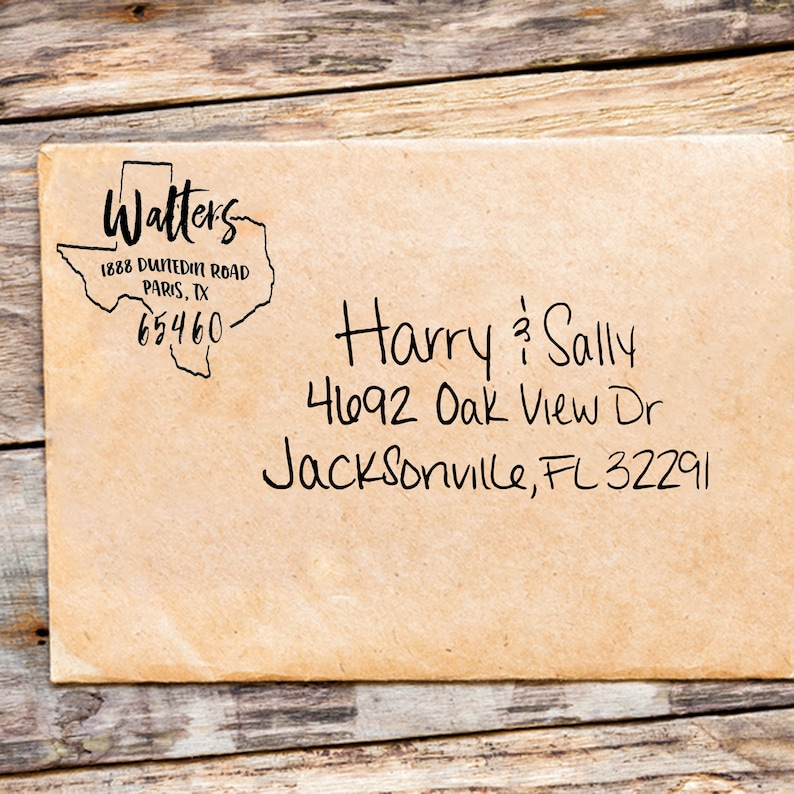 Walters
1888 DUNEDIN ROAD
PARIS, TX
65460
Harry & Sally
4692 Oak View Dr
Jacksonville, FL 32291